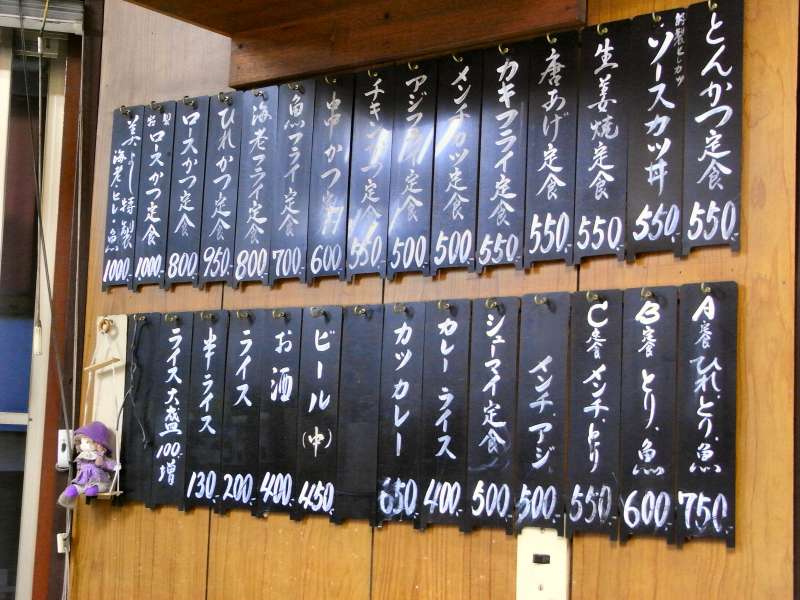 とんかつ定食 550
特製ヒレカツ
ソースカツ丼 550
生姜焼定食 550
唐あげ定食 550
カキフライ定食 550
メンチカツ定食 500
アジフライ定食 500
チキンカツ定食 550
串かつ定食 600
魚フライ定食 700
海老フライ定食 800
ひれかつ定食 950
ロースかつ定食 800
特製
ロースかつ定食 1000
美よし特製
海老・ヒレ・魚 1000
A定食 ひれ、とり、魚 750
B定食 とり、魚 600
C定食 メンチ、とり 550
メンチ、アジ 500
シューマイ定食 500
カレーライス 400
カツカレー 650
ビール(中) 450
お酒 400
ライス 200
半ライス 130
ライス大盛100増